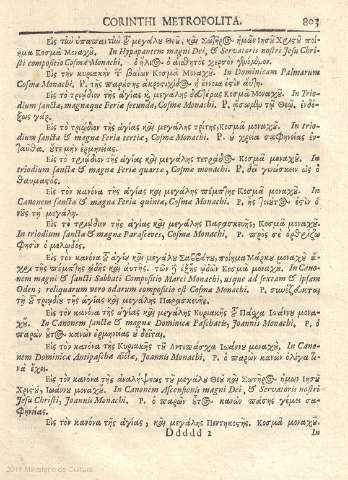 CORINTHI METROPOLITA. 803
Εἰς τὴν ὑπαπαντὴν τοῦ μεγάλου Θεοῦ, καὶ Σωτῆρος ἡμῶν Ἰησοῦ Χριστοῦ ποίη-
μα Κοσμᾶ Μοναχοῦ. In Hypapantem magni Dei, & Servatoris nostri Jesu Chri-
sti compositio Cosmæ Monachi.
Εἰς τὴν κυριακὴν τῶν βαΐων Κοσμᾶ Μοναχοῦ. In Dominicam Palmarum
Cosmæ Monachi. P.
Εἰς τὸ τριῴδιον τῆς ἁγίας καὶ μεγάλης δευτέρας Κοσμᾶ Μοναχοῦ. In Trio-
dium sancta, magnaque Feria secunda, Cosmæ Monachi. P.
Εἰς τὸ τριῴδιον τῆς ἁγίας καὶ μεγάλης τρίτης Κοσμᾶ μοναχοῦ. In trio-
dium sancta & magna Feria tertia, Cosmæ Monachi. P. οὐ χρεία σαφηνείας ἐν-
ταῦθα, οὔτε μὴν ἑρμηνείας.
Εἰς τὸ τριῴδιον τῆς ἁγίας καὶ μεγάλης τετράδος Κοσμᾶ μοναχοῦ. In
triodium sancta & magna Feria quarta, Cosmæ monachi P. δεῖ γινώσκειν ὡς ὁ
θαυμαστός.
Εἰς τὸν κανόνα τῆς ἁγίας καὶ μεγάλης πέμπτης Κοσμᾶ μοναχοῦ. In
Canonem sancta & magna Feria quinta, Cosmæ Monachi. P.
νοῦς τῇ μεγάλῃ.
Εἰς τὸ τριῴδιον τῆς ἁγίας καὶ μεγάλης Παρασκευῆς, Κοσμᾶ μοναχοῦ.
In triodium sancta & magna Parasceves, Cosmæ Monachi. P. πρὸς σὲ ὀρθρίζω
φησὶν ὁ μελῳδός.
Εἰς τὸν κανόνα τοῦ ἁγίου καὶ μεγάλου Σαββάτου, ποίημα Μάρκου μοναχοῦ ἄ-
χρι τῆς πέμπτης ᾠδῆς καὶ αὐτῆς. τῶν δὲ ἑξῆς ᾠδῶν Κοσμᾶ μοναχοῦ. In Cano-
nem magni & sancti Sabbati Compositio Marci Monachi, usque ad sextam & ipsam
Oden; reliquarum vero odarum compositio est Cosmæ Monachi. P.
τῇ τοῦ τριῳδίου τῆς ἁγίας μεγάλης Παρασκευῆς.
Εἰς τὸν κανόνα τῆς ἁγίας καὶ μεγάλης Κυριακῆς τοῦ Πάσχα Ἰωάννου μονα-
χοῦ. In Canonem sancta & magna Dominica Paschatis, Joannis Monachi. P. ὁ
παρὼν οὗτος κανὼν ἑρμηνείας οὐ δεῖται.
Εἰς τὸν κανόνα τῆς Κυριακῆς τοῦ Ἀντιπάσχα Ἰωάννου μοναχοῦ. In Cano-
nem Dominica Antipascha dicta, Joannis Monachi. P. ὁ παρὼν κανὼν ὀλίγα τι-
νὰ ἔχει.
Εἰς τὸν κανόνα τῆς ἀναλήψεως τοῦ μεγάλου Θεοῦ καὶ Σωτῆρος ἡμῶν Ἰησοῦ
Χριστοῦ, Ἰωάννου μοναχοῦ. In Canonem Ascensionis magni Dei, & Servatoris nostri
Jesu Christi, Joannis Monachi. P. ὁ παρὼν οὗτος κανὼν πάσης γέμει σα-
φηνείας.
Εἰς τὸν κανόνα τῆς ἁγίας, καὶ μεγάλης Πεντηκοστῆς, Κοσμᾶ μοναχοῦ.
Ddddd 2 In
2017 Ministerio de Cultura